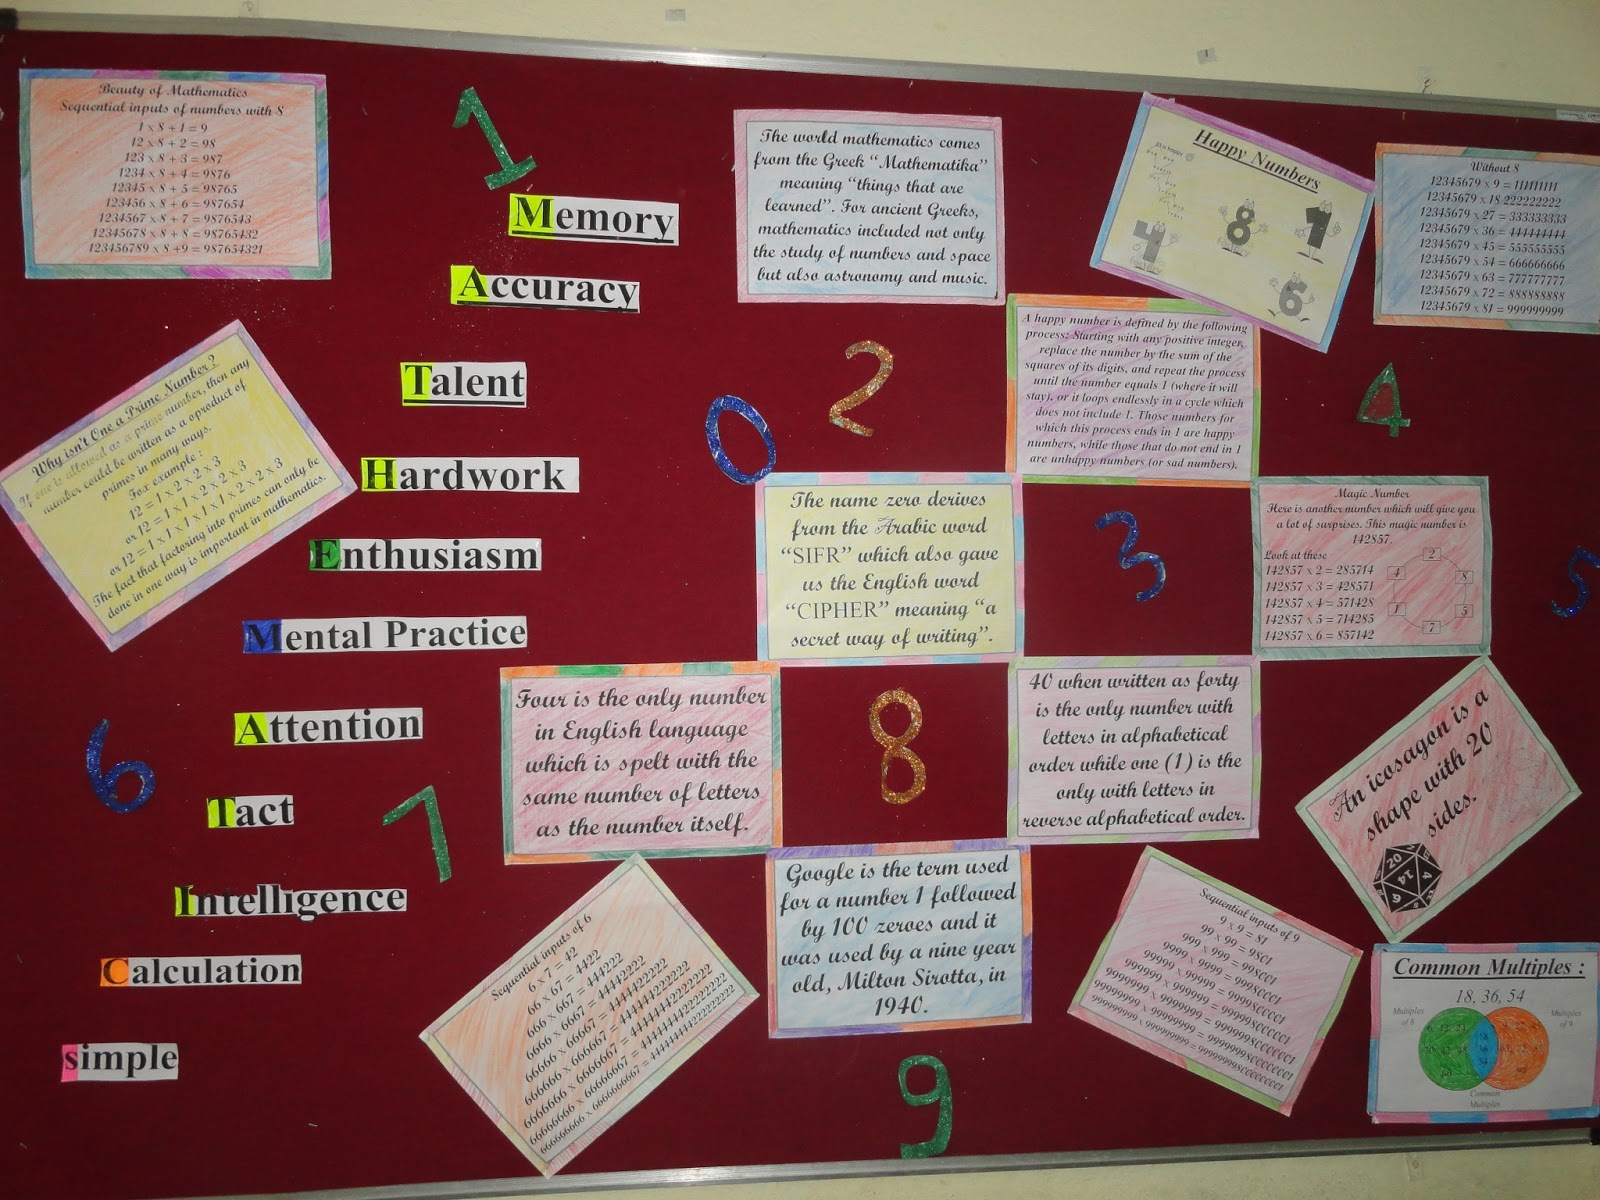 Beauty of Mathematics
Sequential inputs of numbers with 8
1 x 8 + 1 = 9
12 x 8 + 2 = 98
123 x 8 + 3 = 987
1234 x 8 + 4 = 9876
12345 x 8 + 5 = 98765
123456 x 8 + 6 = 987654
1234567 x 8 + 7 = 9876543
12345678 x 8 + 8 = 98765432
123456789 x 8 +9 = 987654321
1
Memory
Accuracy
Talent
Hardwork
Enthusiasm
Mental Practice
Attention
Tact
Intelligence
Calculation
simple
The world mathematics comes
from the Greek "Mathematika"
meaning "things that are
learned". For ancient Greeks,
mathematics included not only
the study of numbers and space
but also astronomy and music.
Happy Numbers
4
8
1
6
Without 8
12345679 x 9 = 111111111
12345679 x 18 222222222
12345679 x 27 = 333333333
12345679 x 36 = 444444444
12345679 x 45 = 555555555
12345679 x 54 = 666666666
12345679 x 63 = 777777777
12345679 x 72 = 888888888
12345679 x 81 = 999999999
Why isn't One a Prime Number ?
If one is allowed as a prime number, then any
number could be written as a product of
primes in many ways.
For example :
12 = 1 x 2 x 2 x 3
or 12 = 1 x 1 x 2 x 2 x 3
or 12 = 1 x 1 x 1 x 1 x 2 x 2 x 3
The fact that factoring into primes can only be
done in one way is important in mathematics.
0
2
A happy number is defined by the following
process: Starting with any positive integer,
replace the number by the sum of the
squares of its digits, and repeat the process
until the number equals 1 (where it will
stay), or it loops endlessly in a cycle which
does not include 1. Those numbers for
which this process ends in 1 are happy
numbers, while those that do not end in 1
are unhappy numbers (or sad numbers).
4
The name zero derives
from the Arabic word
"SIFR" which also gave
us the English word
"CIPHER" meaning "a
secret way of writing".
3
Magic Number
Here is another number which will give you
a lot of surprises. This magic number is
142857.
Look at these
142857 x 2 = 285714
142857 x 3 = 428571
142857 x 4 = 571428
142857 x 5 = 714285
142857 x 6 = 857142
2
4
8
1
5
7
5
6
7
Four is the only number
in English language
which is spelt with the
same number of letters
as the number itself.
8
40 when written as forty
is the only number with
letters in alphabetical
order while one (1) is the
only with letters in
reverse alphabetical order.
An icosagon is a
shape with 20
sides.
20
14
6
Sequential inputs of 6
6 x 7 = 42
66 x 67 = 4422
666 x 667 = 444222
6666 x 6667 = 44442222
66666 x 66667 = 4444422222
666666 x 666667 = 444444222222
6666666 x 6666667 = 44444442222222
66666666 x 66666667 = 4444444422222222
666666666 x 666666667 = 444444444222222222
Google is the term used
for a number 1 followed
by 100 zeroes and it
was used by a nine year
old, Milton Sirotta, in
1940.
9
Sequential inputs of 9
9 x 9 = 81
99 x 99 = 9801
999 x 999 = 998001
9999 x 9999 = 99980001
99999 x 99999 = 9999800001
999999 x 999999 = 999998000001
9999999 x 9999999 = 99999980000001
99999999 x 99999999 = 9999999800000001
999999999 x 999999999 = 999999998000000001
Common Multiples :
18, 36, 54
Multiples
of 9
Common
Multiples